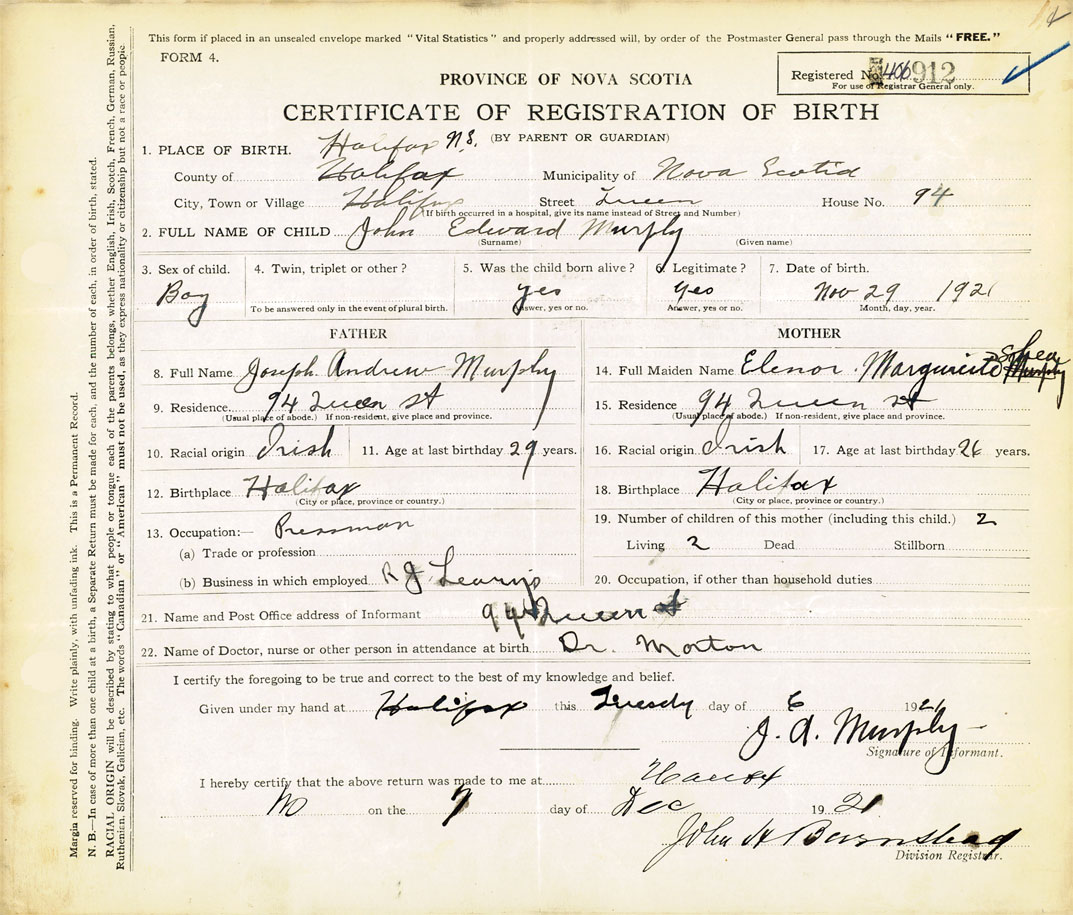 This form if placed in an unsealed envelope marked "Vital Statistics" and properly addressed will, by order of the Postmaster General pass through the Mails "FREE."
FORM 4.
PROVINCE OF NOVA SCOTIA
Registered No. 406912
For use of Registrar General only.
CERTIFICATE OF REGISTRATION OF BIRTH
(BY PARENT OR GUARDIAN)
1. PLACE OF BIRTH. Halifax N.S.
County of Halifax Municipality of Nova Scotia
City, Town or Village Halifax Street Queen House No. 94
(If birth occurred in a hospital, give its name instead of Street and Number)
2. FULL NAME OF CHILD John Edward Murphy
(Surname) (Given name)
3. Sex of child. 4. Twin, triplet or other? 5. Was the child born alive? 6. Legitimate? 7. Date of birth.
Boy yes yes Nov 29 1921
To be answered only in the event of plural birth. Answer, yes or no. Answer, yes or no. Month, day, year.
FATHER
8. Full Name Joseph Andrew Murphy
9. Residence 94 Queen st
(Usual place of abode.) If non-resident, give place and province.
10. Racial origin Irish 11. Age at last birthday 29 years.
12. Birthplace Halifax
(City or place, province or country.)
13. Occupation:— Pressman
(a) Trade or profession
(b) Business in which employed R J
MOTHER
14. Full Maiden Name Elenor Marguirite Shea Murphy
15. Residence 94 Queen st
(Usual place of abode.) If non-resident, give place and province.
16. Racial origin Irish 17. Age at last birthday 26 years.
18. Birthplace Halifax
(City or place, province or country.)
19. Number of children of this mother (including this child.) 2
Living 2 Dead Stillborn
20. Occupation, if other than household duties
21. Name and Post Office address of Informant 94 Queen st
22. Name of Doctor, nurse or other person in attendance at birth Dr. Morton
I certify the foregoing to be true and correct to the best of my knowledge and belief.
Given under my hand at Halifax this Tuesdy day of 6 1921
J. A. Murphy
Signature of Informant.
I hereby certify that the above return was made to me at
on the 7 day of Dec 1921
John H Barnstead
Division Registrar.
Margin reserved for binding. Write plainly, with unfading ink. This is a Permanent Record.
N. B.—In case of more than one child at a birth, a Separate Return must be made for each, and the number of each, in order of birth, stated.
RACIAL ORIGIN will be described by stating to what people or tongue each of the parents belongs, whether English, Irish, Scotch, French, German, Russian,
Ruthenian, Slovak, Galician, etc. The words "Canadian" or "American" must not be used, as they express nationality or citizenship but not a race or people